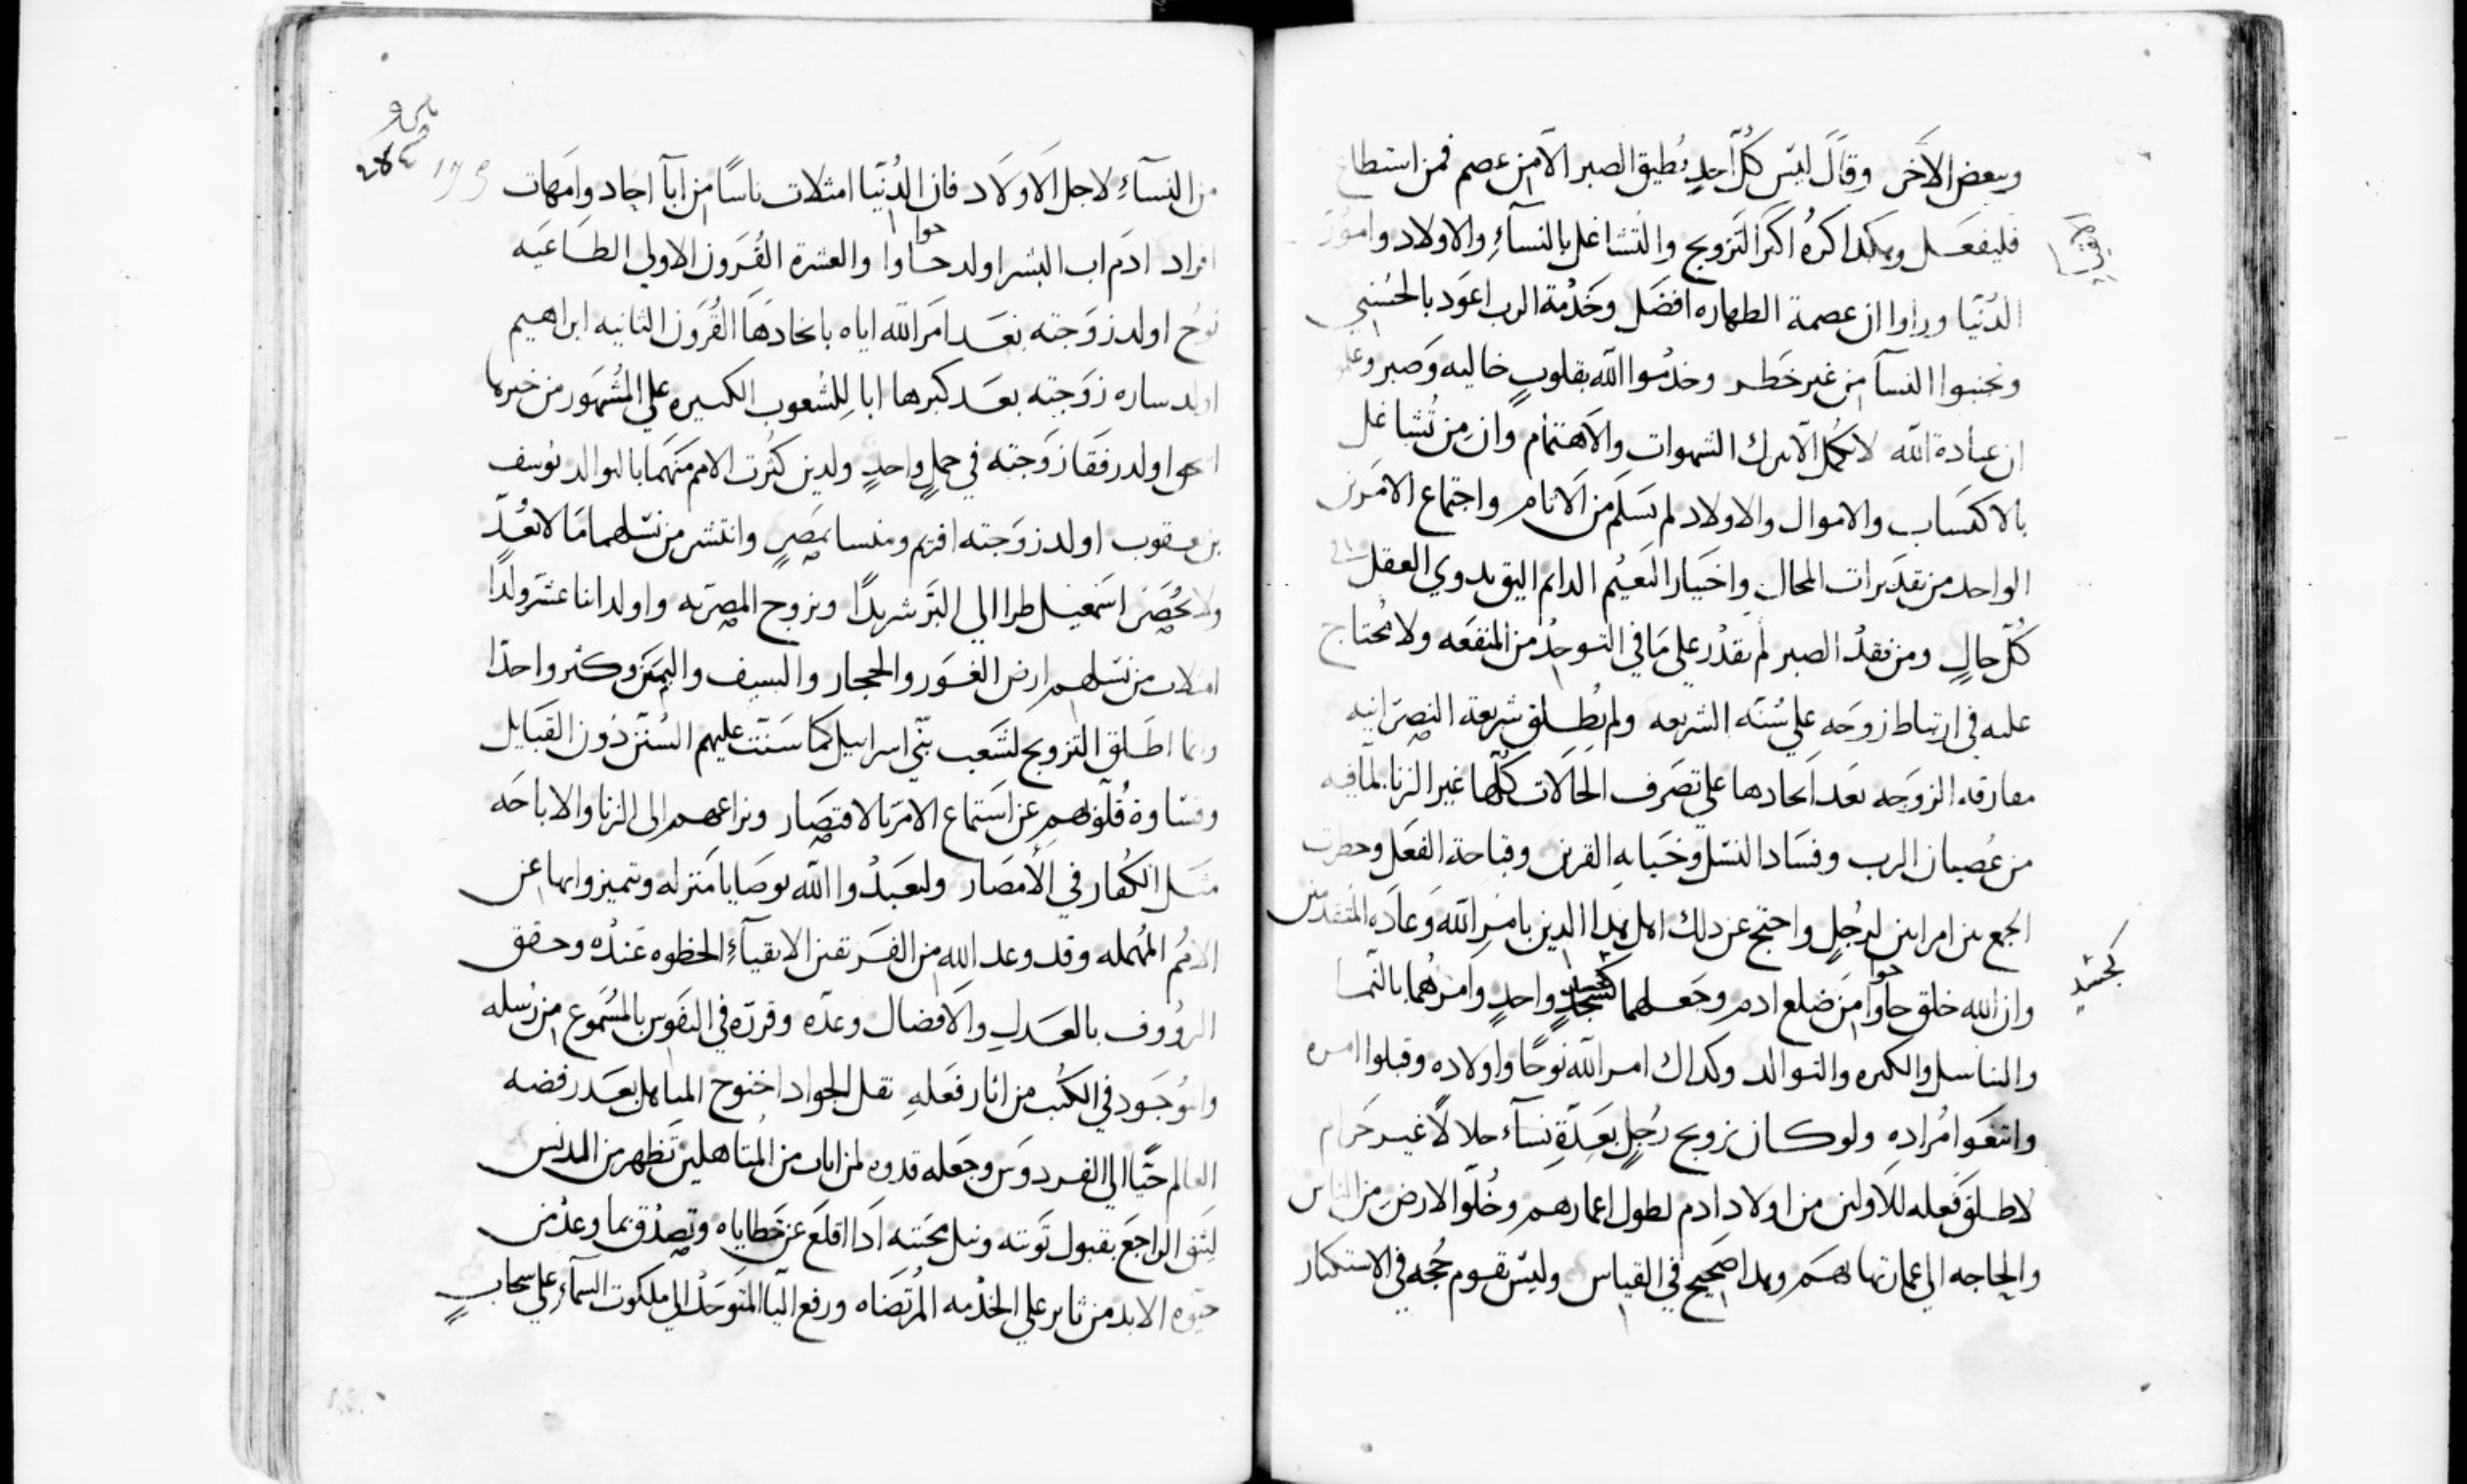 ويبعض الآخر وقال ليس كل احد يطيق الصبر الا من عصم فمن استطاع
فليفعل وهكذا كره اكثر التزويج والتشاغل بالنساء والاولاد وامور
الاتقيا
الدنيا وراوا ان عصمة الطهاره افضل وخدمة الرب اعود بالحسني
وتجنبوا النسآ من غير خطر وخدموا الله بقلوب خاليه وصبر وعلموا
ان عبادة الله لا تكمل الا بترك الشهوات والاهتمام وان من تشاغل
بالاكتساب والاموال والاولاد لم يسلم من الانام واجتماع الامرين في
الواحد من تقديرات المحال واختيار النعيم الدائم اليق بدوي العقل علي
كل حال ومن فقد الصبر لم يقدر علي ما في التوحد من المنفعه ولا يحتاج
عليه في ارتباط زوجه علي سنة الشريعه ولم يطلق شريعة النصرانيه
مفارقه الزوجه بعد اتحادها علي تصرف الحالات كلها غير الزنا لما فيه
من عصيان الرب وفساد النسل وخيانه القرين وقباحة الفعل وحظرت
الجمع بين امراتين لرجل واحتج عن دلك اهل هدا الدين بامر الله وعاده المتقدمين
وان الله خلق حاوا حوا من ضلع ادم وجعلهما كجسد واحد وامرهما بالنما
كجسد
والتناسل والكثره والتوالد وكداك امر الله نوحا واولاده وقبلوا امره
واتبعوا مراده ولو كان تزويج رجل بعدة نسآء حلالا غير حرام
لاطلق فعله للاولين من اولاد ادم لطول اعمارهم وخلو الارض من الناس
والحاجه الي عمارتها بهم وهدا صحيح في القياس وليس تقوم حجه في الاستكثار
179
من النسآء لاجل الاولاد فان الدنيا امتلات ناسا من ابآ احاد وامهات
افراد ادم اب البشر اولد حاوا حوا والعشرة القرون الاولي الطاغيه
نوح اولد زوجته بعد امر الله اياه باتحادها القرون الثانيه ابراهيم
اولد ساره زوجته بعد كبرها ابا للشعوب الكبيره علي المشهور من خبرها
اسحق اولد رفقا زوجته في حمل واحد ولدين كثرت الامم منهما بالتوالد يوسف
بن يعقوب اولد زوجته افريم ومنسا بمصر وانتشر من نسلهما ما لا يعد
ولا يحصي اسمعيل طرا الي البر شريدا وتزوج المصريه واولد اثنا عشر ولدا
امتلات من نسلهم ارض الغور والحجاز والسيف واليمن وكثر واحدا
وانما اطلق التزويج لشعب بني اسراييل كما سنت عليهم السنن دون القبايل
وقساوة قلوبهم عن استماع الامر بالاقتصار ونزاعهم الي الزنا والاباحه
مثل الكفار في الامصار وليعبدوا الله بوصايا منزله ويتميزوا بها عن
الامم المهمله وقد وعد الله من الفريقين الاتقيآء الحظوه عنده وحقق
الرؤوف بالعدل والافضال وعده وقرره في النفوس بالمسموع من رسله
والموجود في الكتب من اثار فعله نقل الجواد اخنوخ المتاهل بعد رفضه
العالم حيا الي الفردوس وجعله قدوه لمن اناب من المتاهلين تطهر من المدنس
ليثق الراجع بقبول توبته ونيل محبته ادا اقلع عن خطاياه وتصدق بما وعد من
حيوه الابد من ثابر علي الخدمه المرتضاه ورفع اليا المتوحد الي ملكوت السمآء علي سحاب